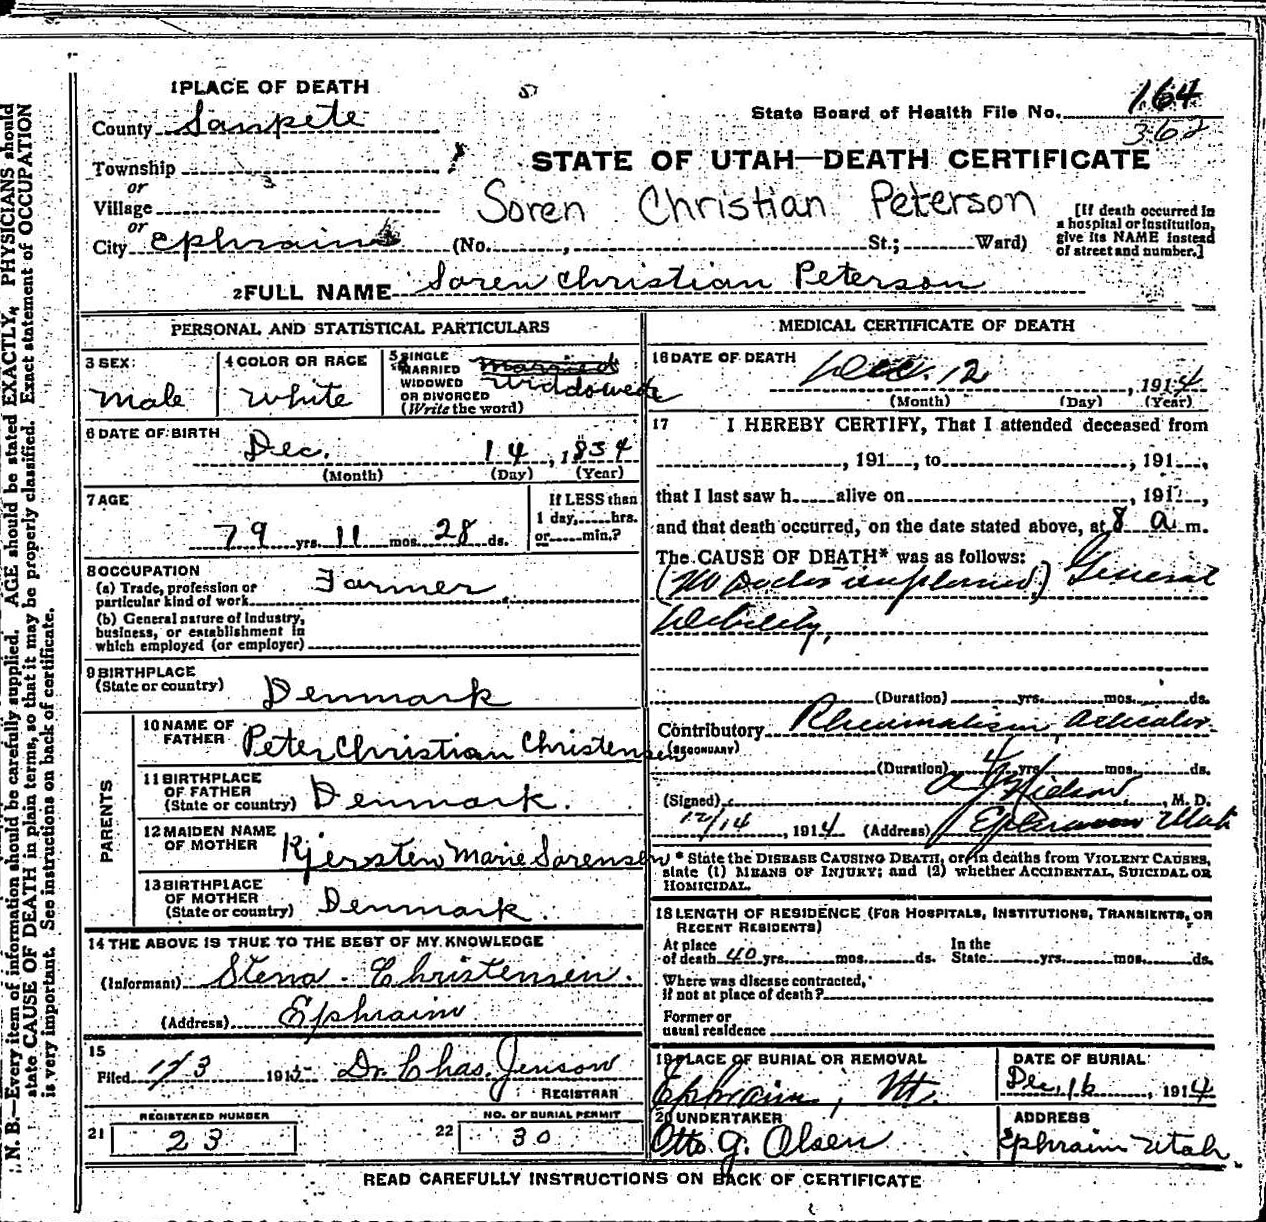 1 PLACE OF DEATH
County Sanpete
State Board of Health File No. 164
362
Township
or
Village
or
City Ephraim
STATE OF UTAH—DEATH CERTIFICATE
Soren Christian Peterson
(No. , St.; Ward)
[If death occurred in
a hospital or institution,
give its NAME instead
of street and number.]
2 FULL NAME Soren Christian Peterson
PERSONAL AND STATISTICAL PARTICULARS
3 SEX:
Male
4 COLOR OR RACE
White
5 SINGLE
MARRIED
WIDOWED
OR DIVORCED
(Write the word)
Married
Widdowede
6 DATE OF BIRTH
Dec. 14, 1834
(Month) (Day) (Year)
7 AGE
79 yrs. 11 mos. 28 ds.
If LESS than
1 day,.....hrs.
or.....min.?
8 OCCUPATION
(a) Trade, profession or
particular kind of work Farmer
(b) General nature of industry,
business, or establishment in
which employed (or employer)
9 BIRTHPLACE
(State or country) Denmark
PARENTS
10 NAME OF
FATHER Peter Christian Christensen
11 BIRTHPLACE
OF FATHER
(State or country) Denmark.
12 MAIDEN NAME
OF MOTHER Kjersten Marie Sorensen
13 BIRTHPLACE
OF MOTHER
(State or country) Denmark.
14 THE ABOVE IS TRUE TO THE BEST OF MY KNOWLEDGE
(Informant) Stena Christensen.
(Address) Ephraim
15
Filed 1/3 191 Dr. Chas. Jenson
REGISTRAR
REGISTERED NUMBER
21 23
NO. OF BURIAL PERMIT
22 30
MEDICAL CERTIFICATE OF DEATH
16 DATE OF DEATH
Dec. 12, 1914
(Month) (Day) (Year)
17 I HEREBY CERTIFY, That I attended deceased from
, 191 , to , 191 ,
that I last saw h alive on , 191 ,
and that death occurred, on the date stated above, at 8 a m.
The CAUSE OF DEATH* was as follows:
(No Doctor employed.) General
Debility,
(Duration) yrs. mos. ds.
Contributory Rheumatism, Articular.
(SECONDARY)
(Duration) yrs. mos. ds.
(Signed) Nielson, M. D.
12/14, 1914 (Address) Ephraim Utah
* State the DISEASE CAUSING DEATH, or in deaths from VIOLENT CAUSES,
state (1) MEANS OF INJURY; and (2) whether ACCIDENTAL, SUICIDAL OR
HOMICIDAL.
18 LENGTH OF RESIDENCE (FOR HOSPITALS, INSTITUTIONS, TRANSIENTS, OR
RECENT RESIDENTS)
At place
of death 40 yrs. mos. ds.
In the
State yrs. mos. ds.
Where was disease contracted,
if not at place of death?
Former or
usual residence
19 PLACE OF BURIAL OR REMOVAL
Ephraim, Ut.
DATE OF BURIAL
Dec. 16, 1914
20 UNDERTAKER
Otto G. Olsen
ADDRESS
Ephraim Utah
READ CAREFULLY INSTRUCTIONS ON BACK OF CERTIFICATE
N. B.—Every item of information should be carefully supplied. AGE should be stated EXACTLY. PHYSICIANS should
state CAUSE OF DEATH in plain terms, so that it may be properly classified. Exact statement of OCCUPATION
is very important. See instructions on back of certificate.